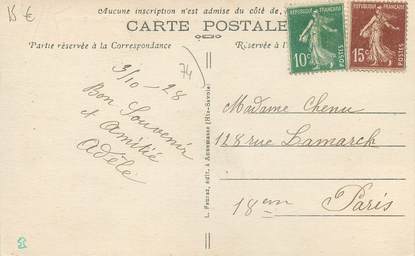 15 €
Aucune inscription n'est admise du côté de
CARTE POSTALE
Partie réservée à la Correspondance
Réservée à l'
RÉPUBLIQUE FRANÇAISE
10c
POSTES
RÉPUBLIQUE FRANÇAISE
15c
POSTES
74
3/10-28
Bon Souvenir
et amitié
Adèle
Madame Chenu
128 rue Lamarck
18em Paris
édit. à Annemasse (Hte-Savoie)